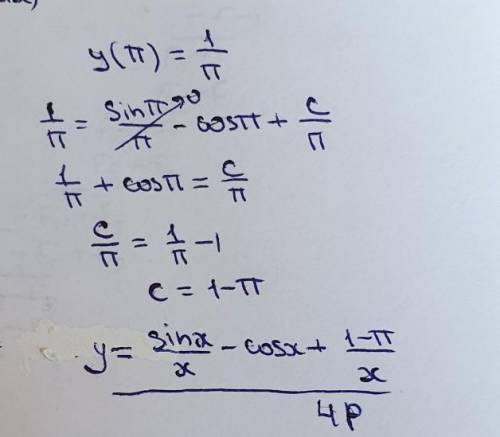 y(π) = 1/π
1/π = sinπ/π → 0 - cosπ + c/π
1/π + cosπ = c/π
c/π = 1/π - 1
c = 1-π
y = sinx/x - cosx + (1-π)/x
4p